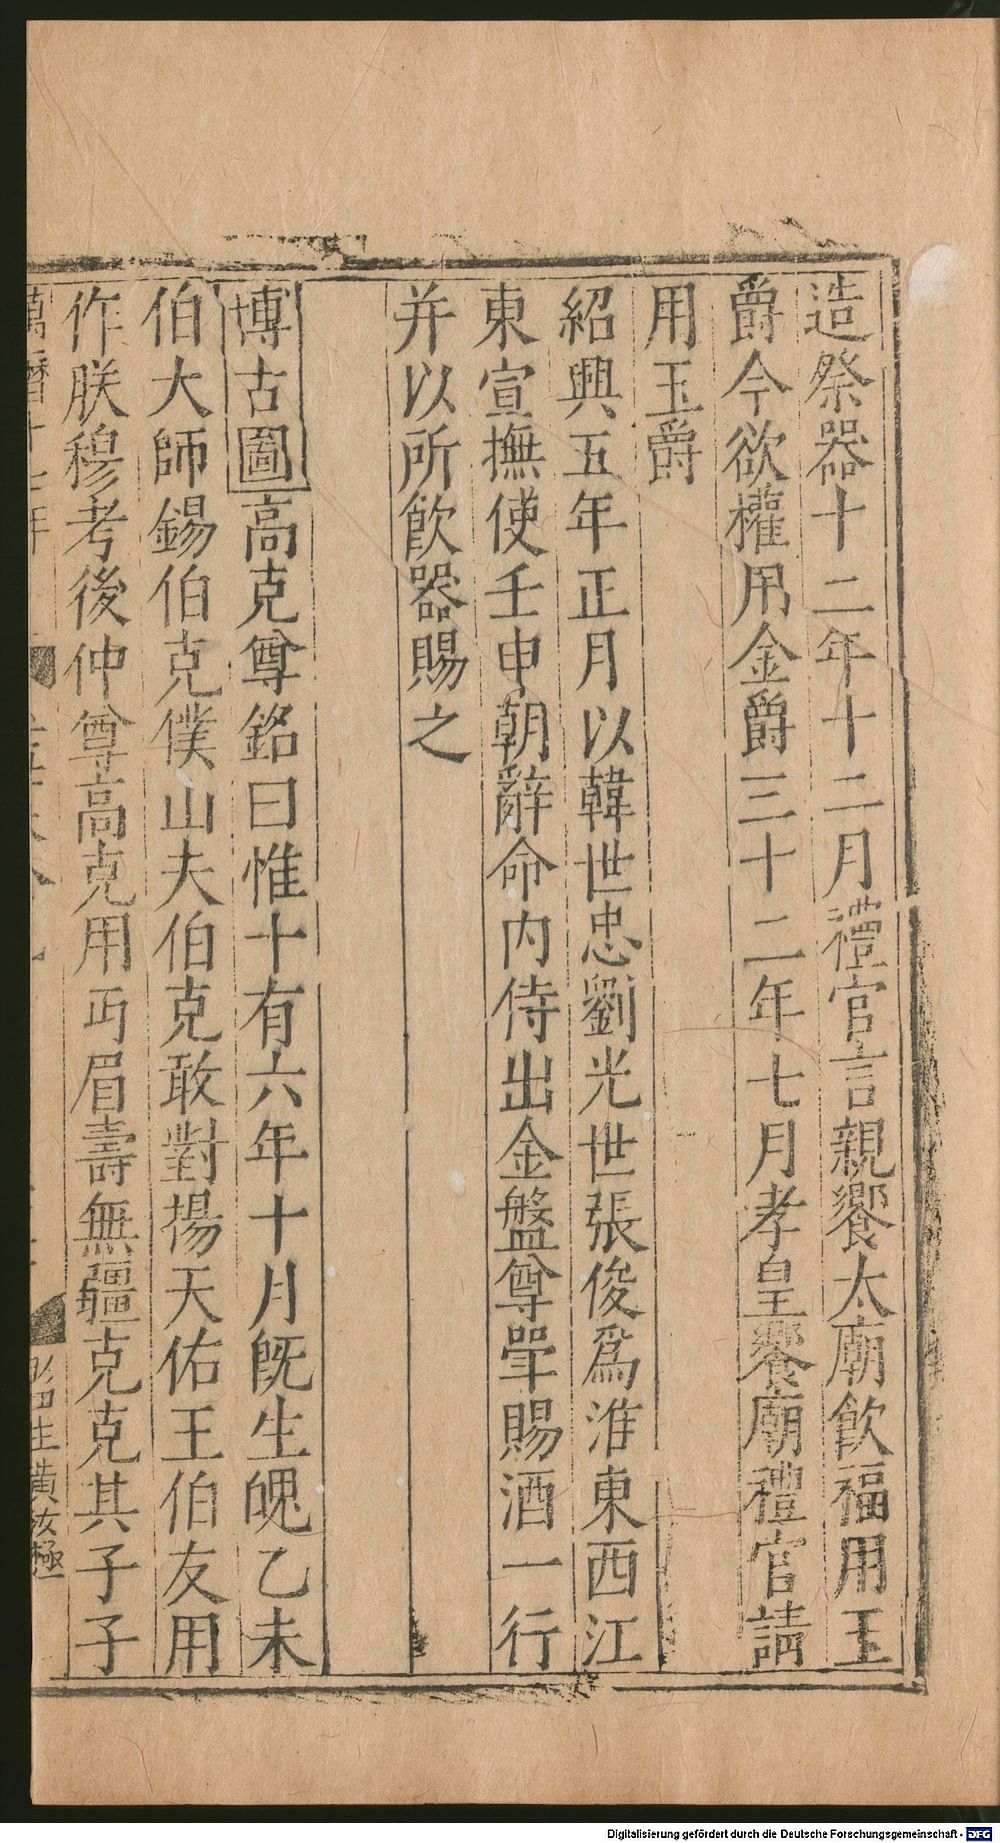 造祭器十二年十二月禮官言親饗太廟飲福用玉
爵今欲權用金爵三十二年七月孝皇饗廟禮官請
用玉爵
紹興五年正月以韓世忠劉光世張俊爲淮東西江
東宣撫使壬申朝辭命内侍出金盤尊斝賜酒一行
并以所飲器賜之
博古圖高克尊銘曰惟十有六年十月旣生魄乙未
伯大師錫伯克僕山夫伯克敢對揚天佑王伯友用
作朕穆考後仲尊高克用丐眉壽無疆克克其子子
萬曆十七年
生黃汝極
Digitalisierung gefördert durch die Deutsche Forschungsgemeinschaft - DFG